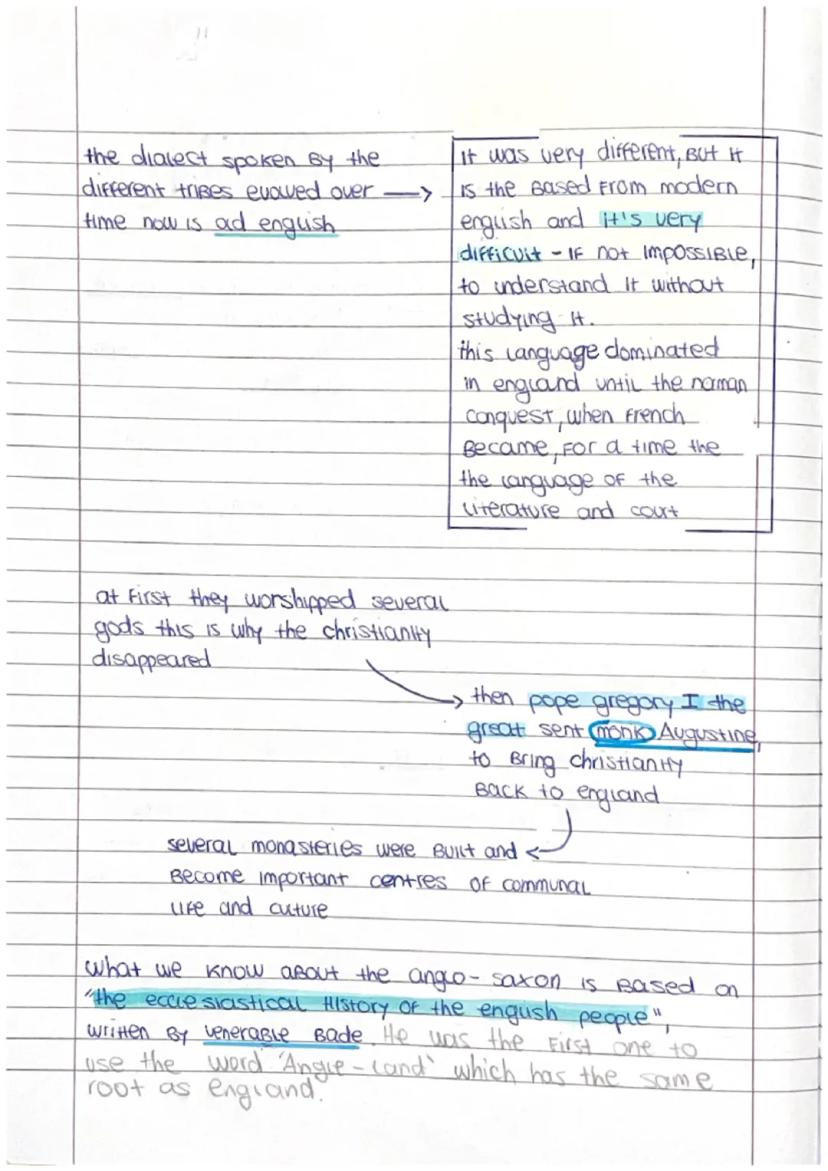 the dialect spoken by the
different tribes evolved over →
time now is old english
It was very different, but it
is the based from modern
english and it's very
difficult - if not impossible,
to understand it without
studying it.
this language dominated
in england until the norman
conquest, when french
became, for a time the
the language of the
literature and court
at first they worshipped several
gods this is why the christianity
disappeared
then pope gregory I the
great sent monk Augustine,
to bring christianity
back to england
several monasteries were built and
become important centres of communal
life and cuture
what we know about the anglo-saxon is based on
"the ecclesiastical history of the english people",
written by venerable Bade. He was the first one to
use the word 'Angle-land' which has the same
root as england.